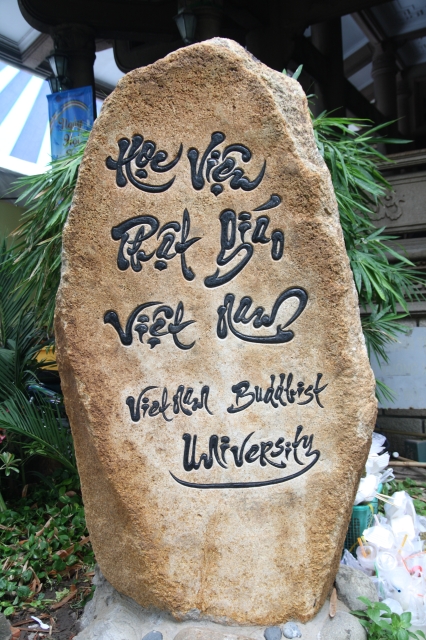 Học Viện
Phật Giáo
Việt Nam
Vietnam Buddhist
University